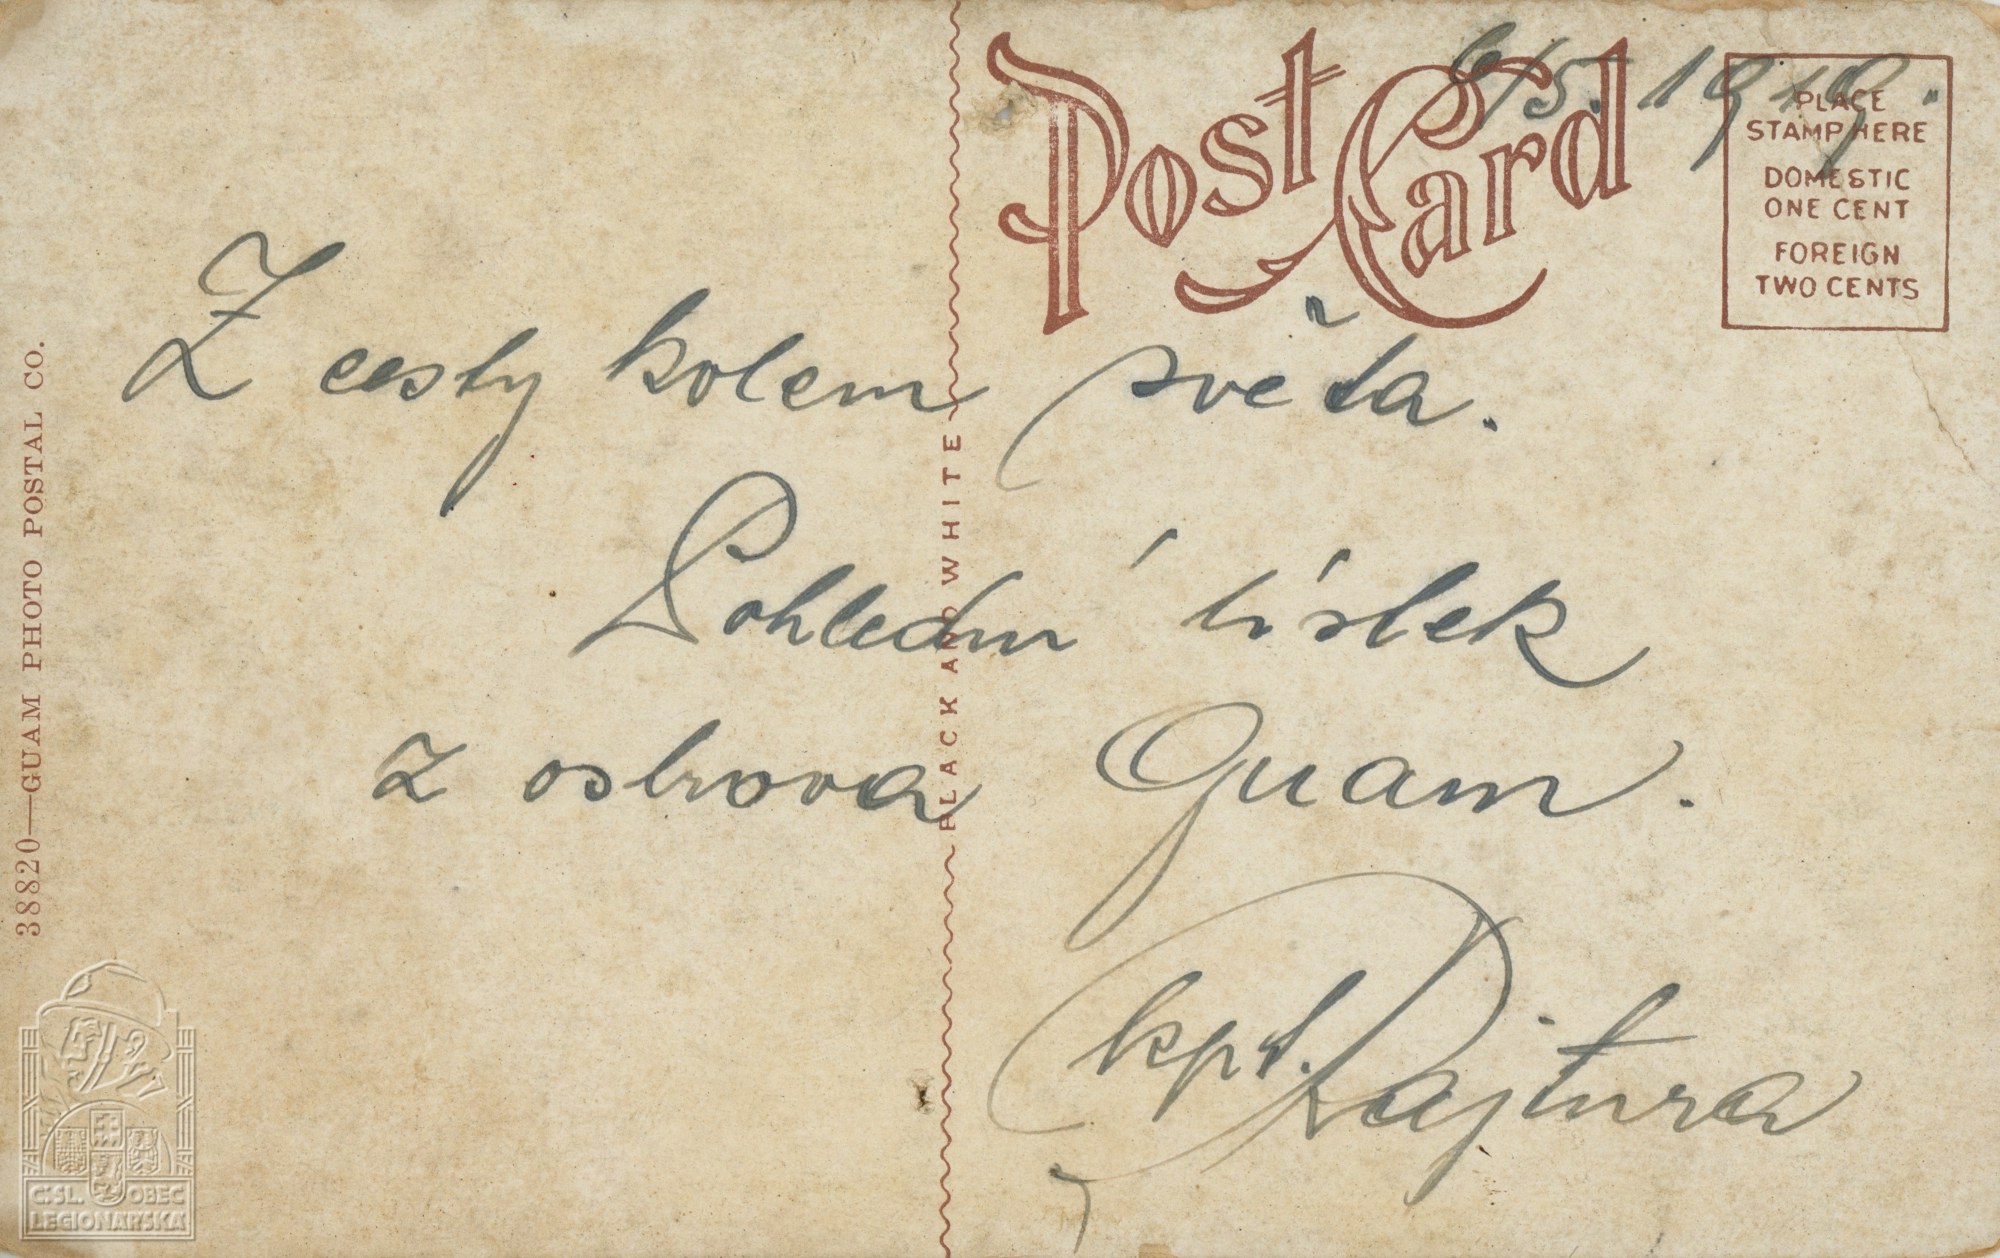 6/5. 1919.
Post Card
PLACE
STAMP HERE
DOMESTIC
ONE CENT
FOREIGN
TWO CENTS
Z cesty kolem světa.
Pohlední lístek
z ostrova Guam.
kpt. Dajtura
BLACK AND WHITE
38820—GUAM PHOTO POSTAL CO.
ČSL. OBEC
LEGIONÁŘSKÁ